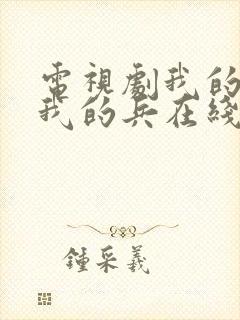 電視劇我的
我的兵在綫
鍾采羲